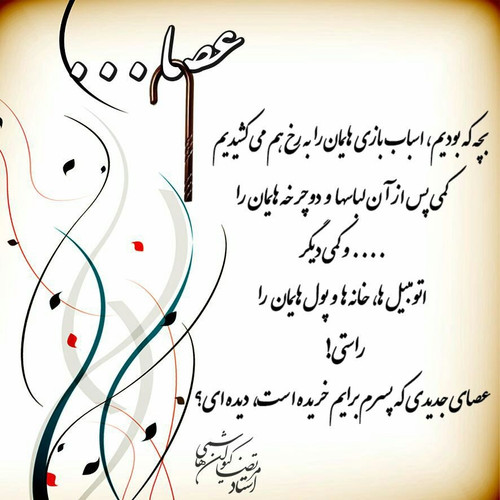 عصا...
بچه که بودیم، اسباب بازی هایمان را به رخ هم می کشیدیم
کمی پس از آن لباسها و دوچرخه هایمان را
.... و کمی دیگر
اتومبیل ها، خانه ها و پول هایمان را
راستی!
عصای جدیدی که پسرم برایم خریده است، دیده ای؟
استاد مرتضی کیوان هاشمی